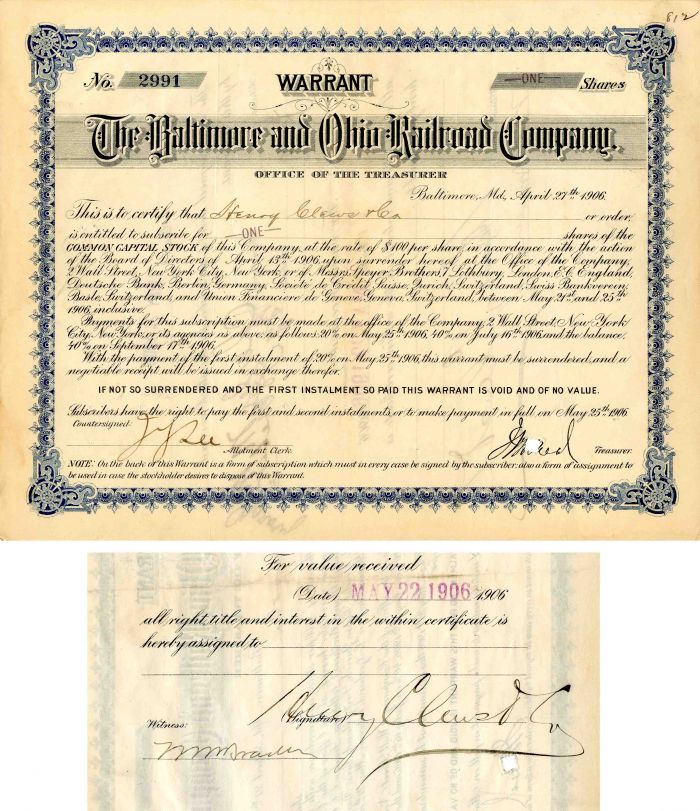 812
No. 2991 WARRANT ONE Shares
The Baltimore and Ohio Railroad Company.
OFFICE OF THE TREASURER
Baltimore, Md., April 27th 1906.
This is to certify that Henry Clews & Co or order,
is entitled to subscribe for ONE shares of the
COMMON CAPITAL STOCK of this Company, at the rate of $100 per share, in accordance with the action
of the Board of Directors of April 13th 1906, upon surrender hereof at the Office of the Company,
2 Wall Street, New York City, New York, or of Messrs Speyer Brothers, 7 Lothbury, London, E.C. England,
Deutsche Bank, Berlin, Germany, Societé de Crédit Suisse, Zurich, Switzerland, Swiss Bankverein,
Basle, Switzerland, and Union Financiere de Geneve, Geneva, Switzerland, between May 21st and 25th
1906, inclusive.
Payments for this subscription must be made at the office of the Company, 2 Wall Street, New York
City, New York, or its agencies as above, as follows, 20% on May 25th 1906, 40% on July 16th 1906, and the balance,
40% on September 17th 1906.
With the payment of the first instalment of 20% on May 25th 1906, this warrant must be surrendered, and a
negotiable receipt will be issued in exchange therefor.
IF NOT SO SURRENDERED AND THE FIRST INSTALMENT SO PAID THIS WARRANT IS VOID AND OF NO VALUE.
Subscribers have the right to pay the first and second instalments, or to make payment in full on May 25th 1906.
Countersigned:
Allotment Clerk. Treasurer.
NOTE: On the back of this Warrant is a form of subscription which must in every case be signed by the subscriber, also a form of assignment to
be used in case the stockholder desires to dispose of this Warrant.
For value received
(Date) MAY 22 1906 1906
all right, title and interest in the within certificate is
hereby assigned to
(Signature) Henry Clews & Co
Witness: